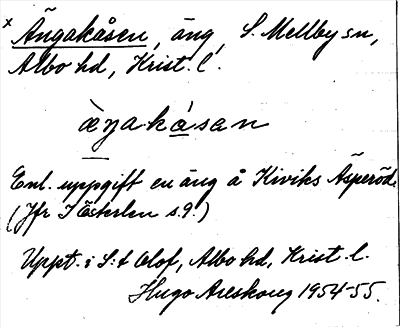 x Ängakåsen, äng, S. Mellby sn,
Albo hd, Krist. l.
ὰŋakȧsan
Enl. uppgift en äng å Kiviks Äsperöd.
(Jfr I Österlen s. 9.)
Uppt. i S:t Olof, Albo hd, Krist. l.
Hugo Areskoug 1954-55.